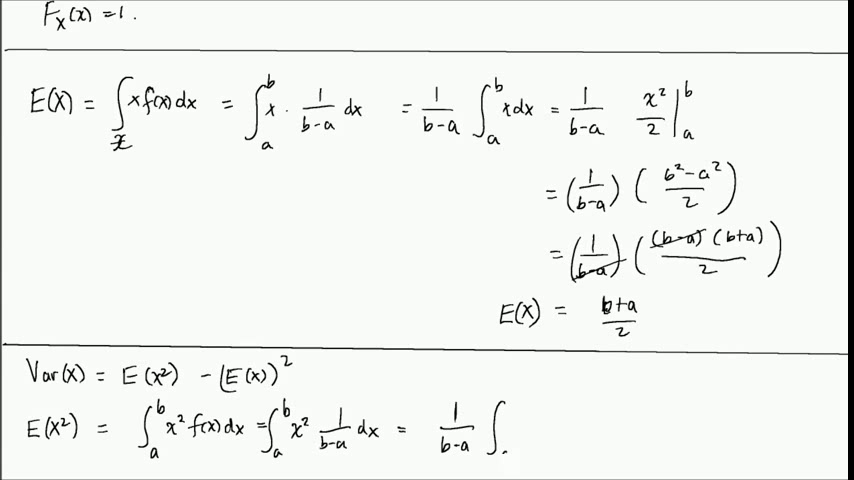 F_X(x) = 1.
E(X) = ∫_𝒳 x f(x) dx = ∫_a^b x · 1/(b-a) dx = 1/(b-a) ∫_a^b x dx = 1/(b-a) x²/2 |_a^b
= (1/(b-a)) ((b²-a²)/2)
= (1/(b-a)) ((b-a)(b+a)/2)
E(X) = (b+a)/2
Var(X) = E(X²) - (E(X))²
E(X²) = ∫_a^b x² f(x) dx = ∫_a^b x² 1/(b-a) dx = 1/(b-a) ∫